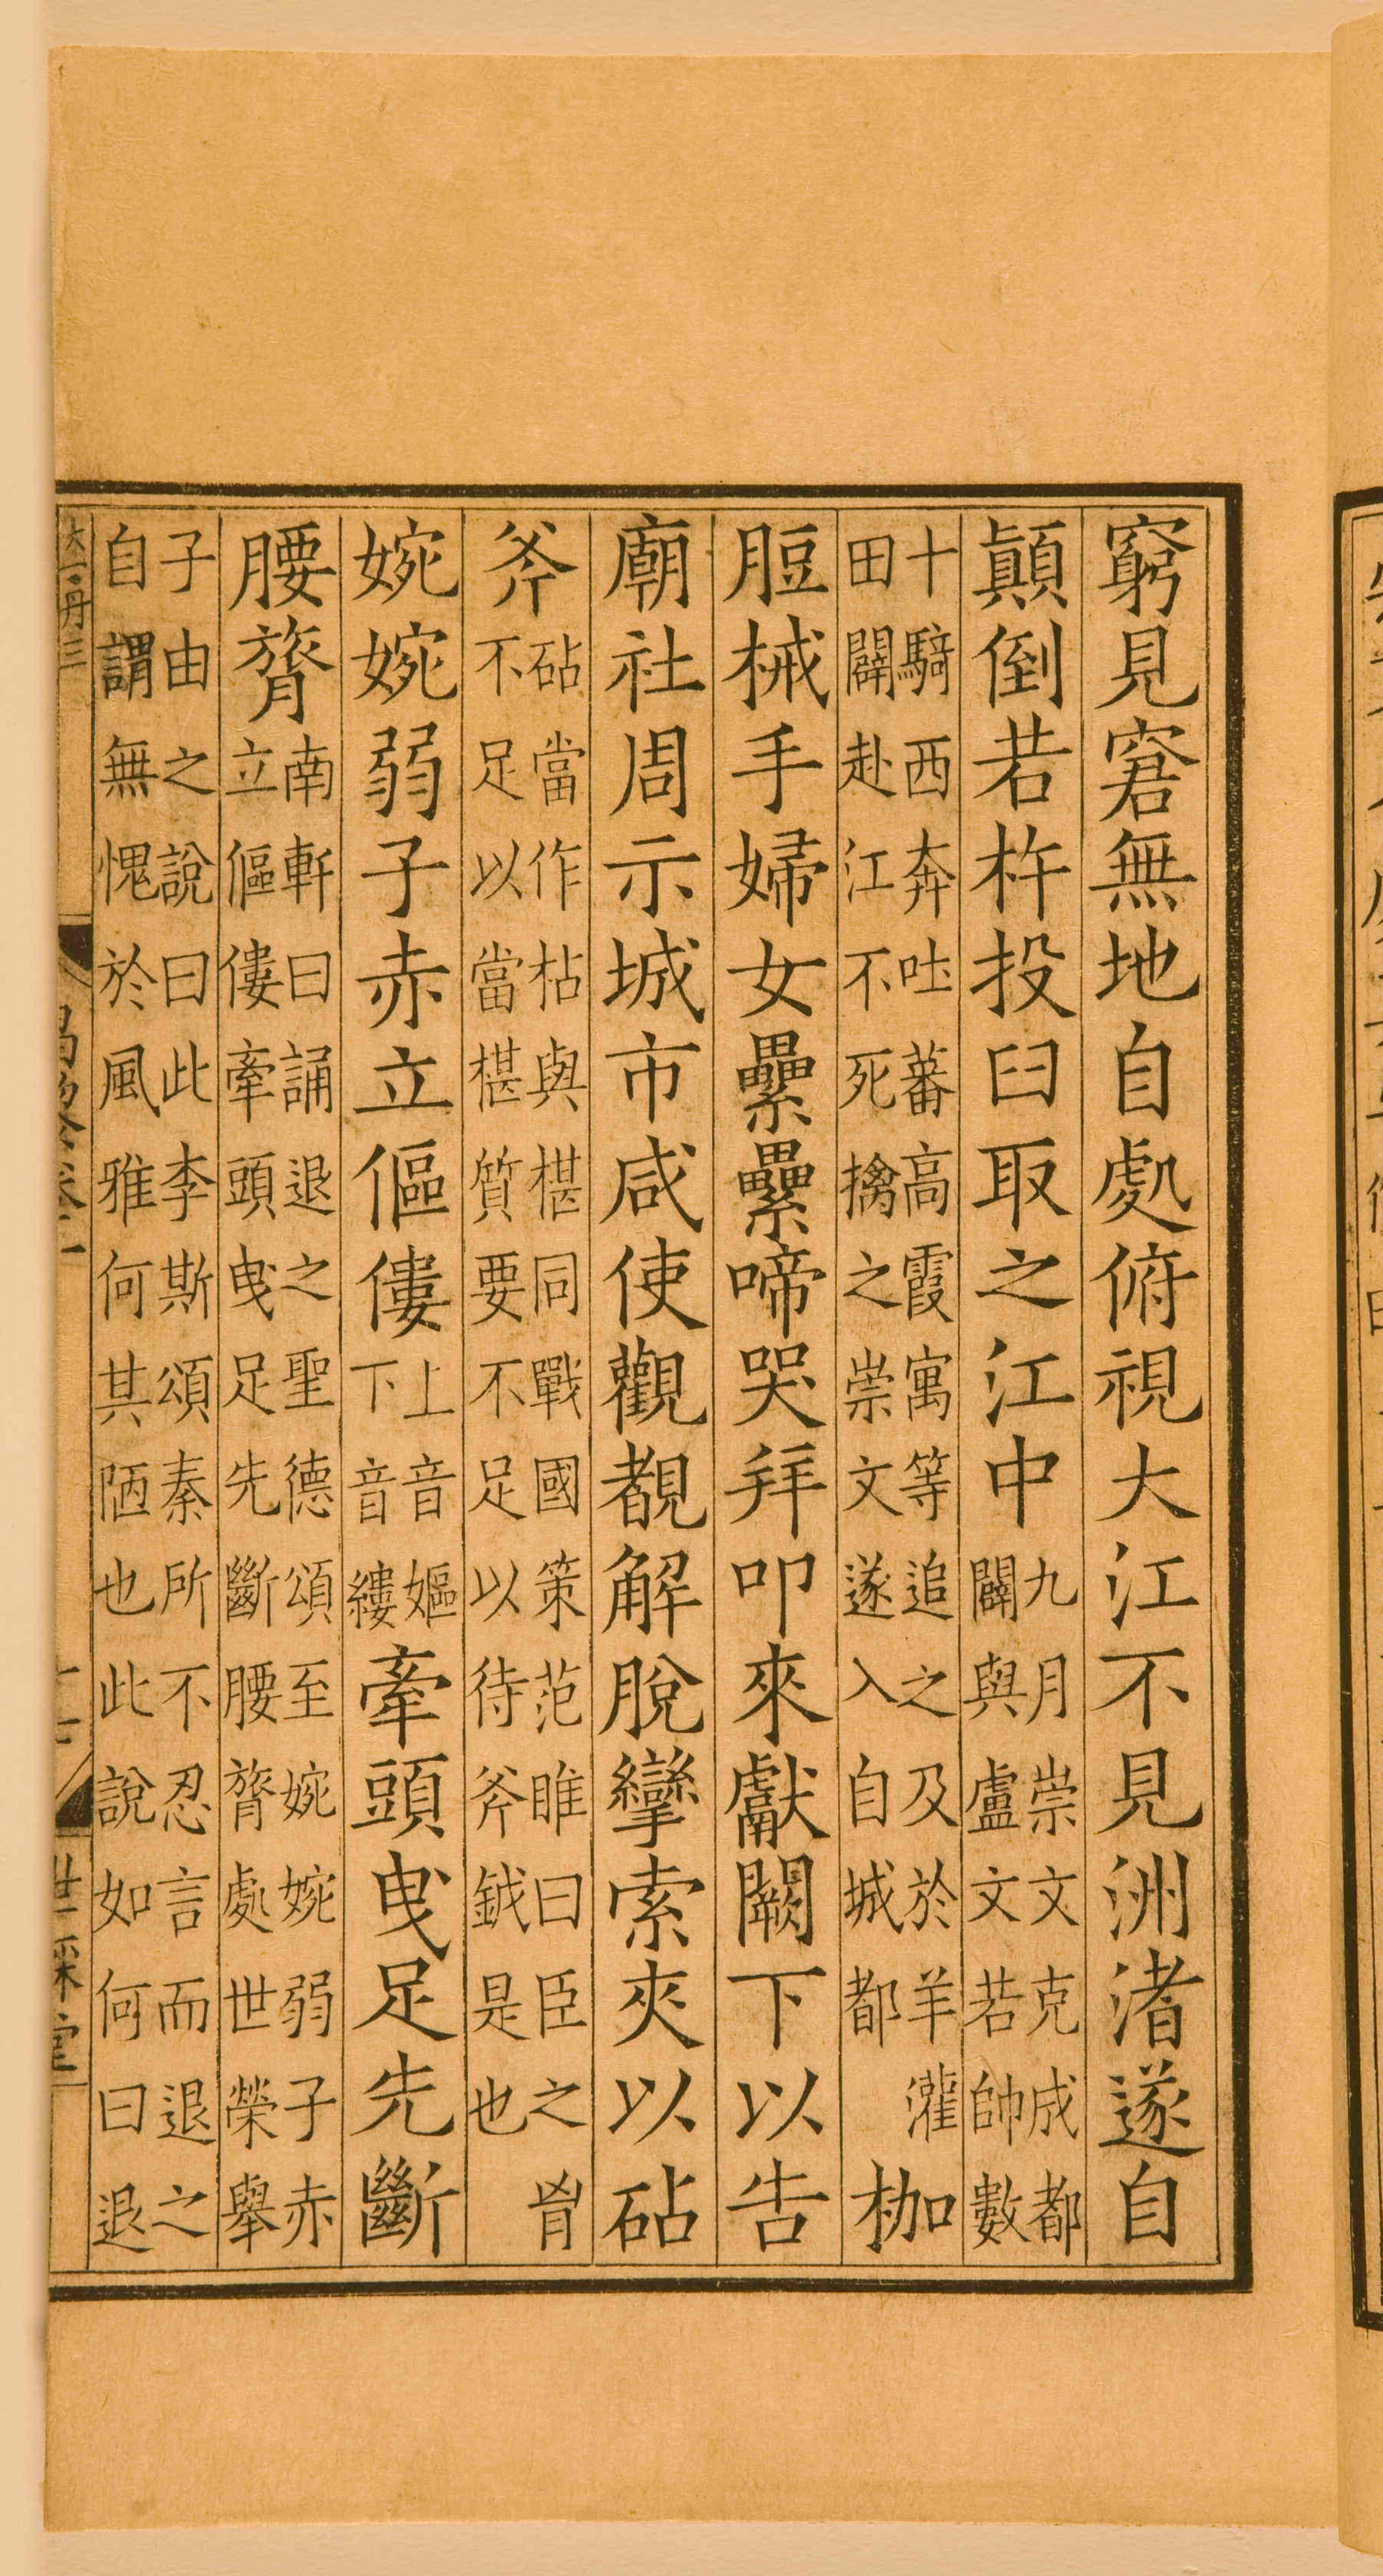 窮見窘無地自處俯視大江不見洲渚遂自
顛倒若杵投臼取之江中九月崇文克成都闢與盧文若帥數
十騎西奔吐蕃高霞寓等追之及於羊灌田闢赴江不死擒之崇文遂入自城都枷
脰械手婦女纍纍啼哭拜叩來獻闕下以告
廟社周示城市咸使觀覩解脫攣索夾以砧
斧砧當作枮與椹同戰國策范睢曰臣之胷不足以當椹質要不足以待斧鉞是也
婉婉弱子赤立傴僂上音嫗下音縷牽頭曳足先斷
腰膂南軒曰誦退之聖德頌至婉婉弱子赤立傴僂牽頭曳足先斷腰膂處世榮舉
子由之說曰此李斯頌秦所不忍言而退之自謂無愧於風雅何其陋也此說如何曰退
世綵堂